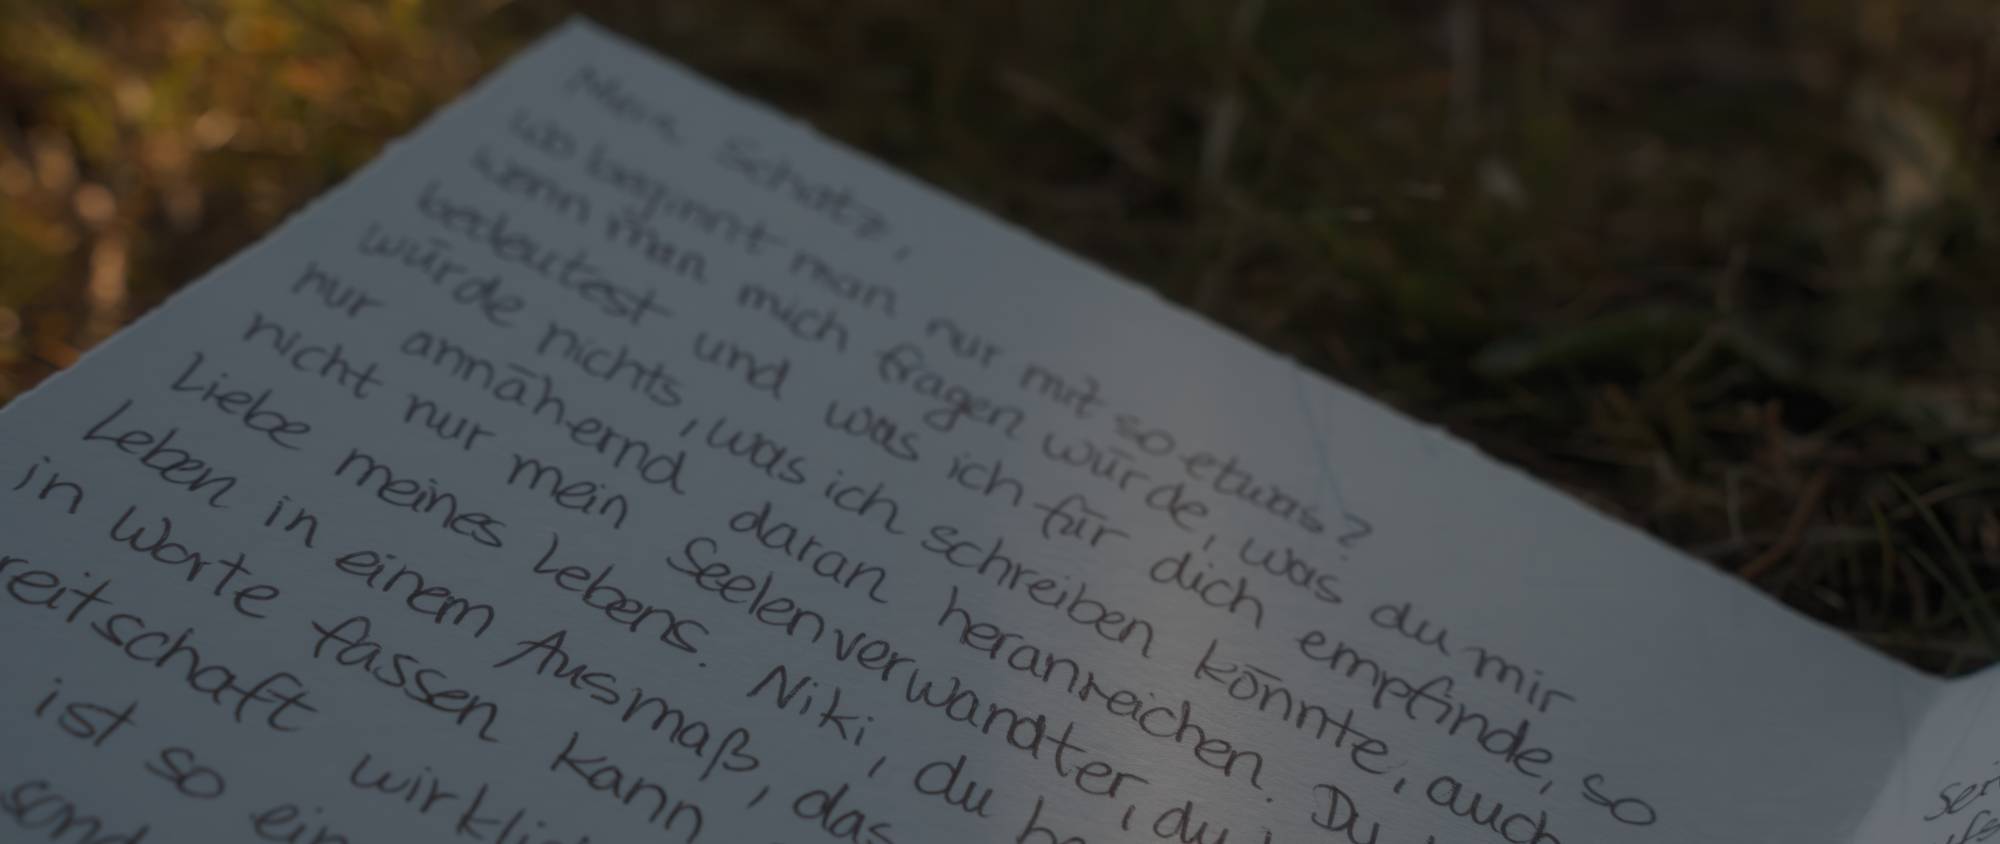 Mein Schatz,
wo beginnt man nur mit so etwas?
wenn man mich fragen würde, was du mir
bedeutest und was ich für dich empfinde, so
würde nichts, was ich schreiben könnte, auch
nur annähernd daran heranreichen. Du
nicht nur mein Seelenverwandter, du
Liebe meines Lebens. Niki, du
Leben in einem Ausmaß, das
in Worte fassen kann
reitschaft
ist so ein